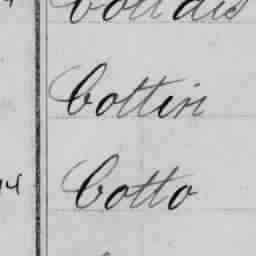 Cottin
14 Cotto